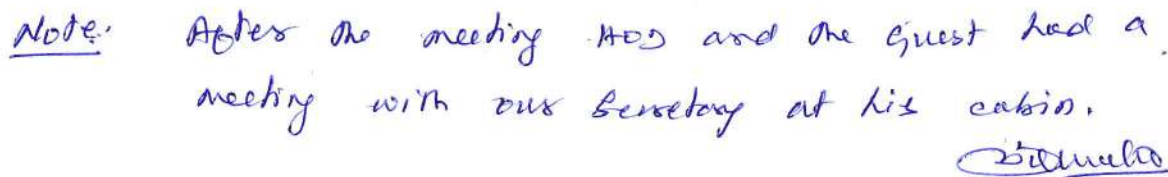 Note: After the meeting HOD and the Guest had a
meeting with our Secretary at his cabin.